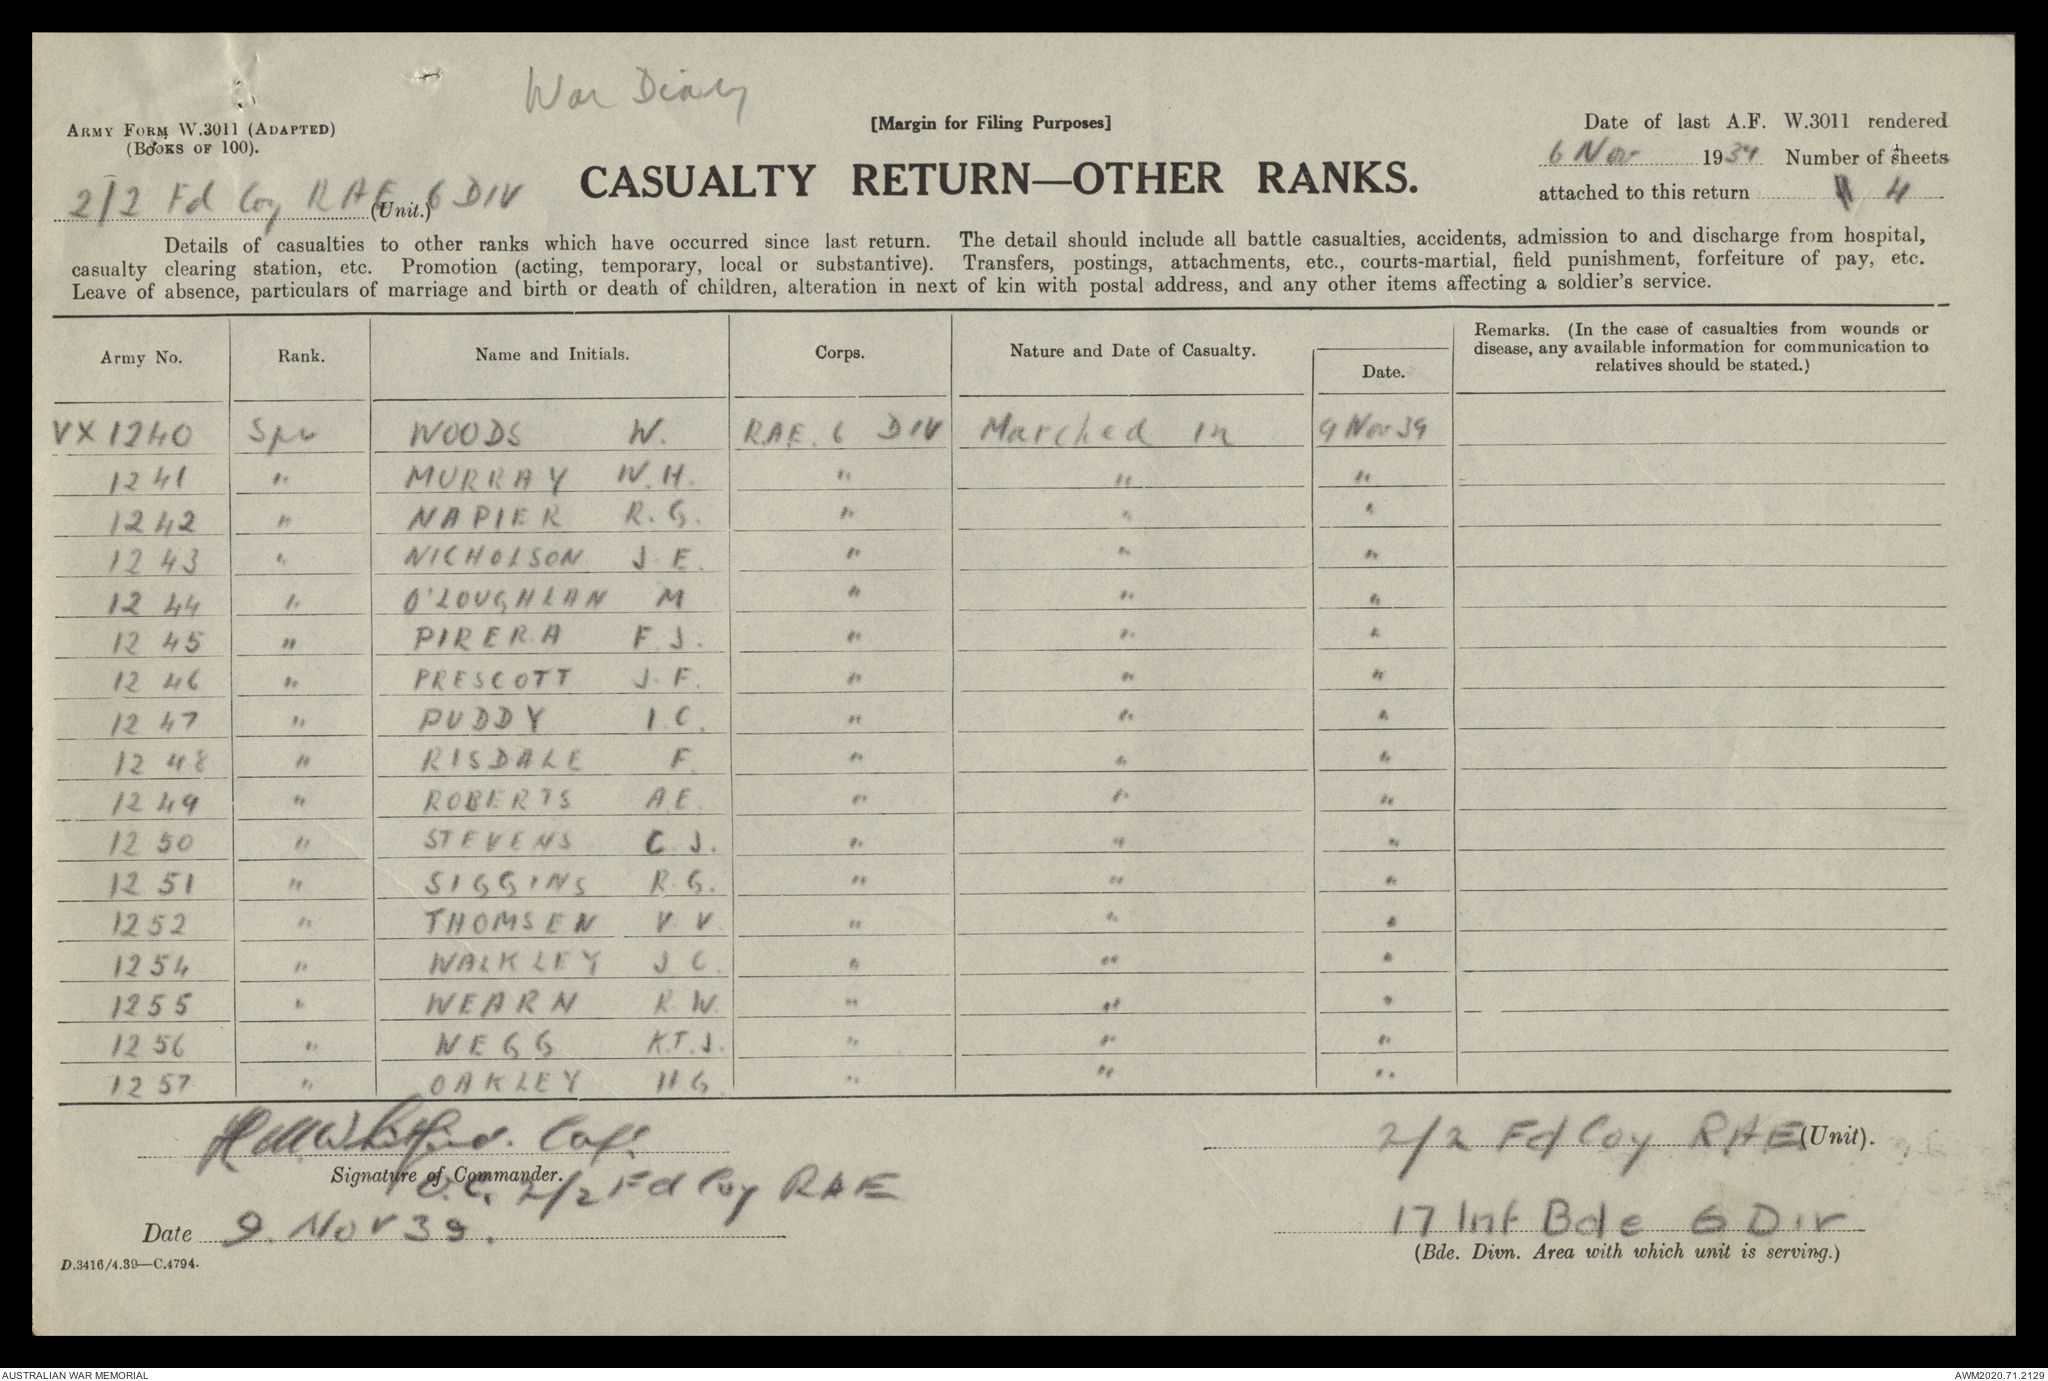 War Diary
ARMY FORM W.3011 (ADAPTED)
(BOOKS OF 100).
[Margin for Filing Purposes]
Date of last A.F. W.3011 rendered
6 Nov 1939 Number of sheets
attached to this return 4
2/2 Fd Coy RAE 6 DIV (Unit.)
CASUALTY RETURN—OTHER RANKS.
Details of casualties to other ranks which have occurred since last return. The detail should include all battle casualties, accidents, admission to and discharge from hospital,
casualty clearing station, etc. Promotion (acting, temporary, local or substantive). Transfers, postings, attachments, etc., courts-martial, field punishment, forfeiture of pay, etc.
Leave of absence, particulars of marriage and birth or death of children, alteration in next of kin with postal address, and any other items affecting a soldier's service.
Army No. Rank. Name and Initials. Corps. Nature and Date of Casualty. Date. Remarks. (In the case of casualties from wounds or
disease, any available information for communication to
relatives should be stated.)
VX 1240 Spr WOODS W. RAE. 6 DIV Marched In 9 Nov 39
1241 " MURRAY W.H. " " "
1242 " NAPIER R.G. " " "
1243 " NICHOLSON J.E. " " "
1244 " O'LOUGHLAN M " " "
1245 " PIRERA F.J. " " "
1246 " PRESCOTT J.F. " " "
1247 " PUDDY I.C. " " "
1248 " RISDALE F. " " "
1249 " ROBERTS A.E. " " "
1250 " STEVENS C.J. " " "
1251 " SIGGINS R.G. " " "
1252 " THOMSEN V.V. " " "
1254 " WALKLEY J.C. " " "
1255 " WEARN R.W. " " "
1256 " WEGG K.T.J. " " "
1257 " OAKLEY H G " " "
Capt.
Signature of Commander.
O.C. 2/2 Fd Coy RAE
Date 9. Nov 39.
2/2 Fd Coy RAE (Unit).
17 Inf Bde 6 Div
(Bde. Divn. Area with which unit is serving.)
D.3416/4.39—C.4794.
AUSTRALIAN WAR MEMORIAL
AWM2020.71.2129